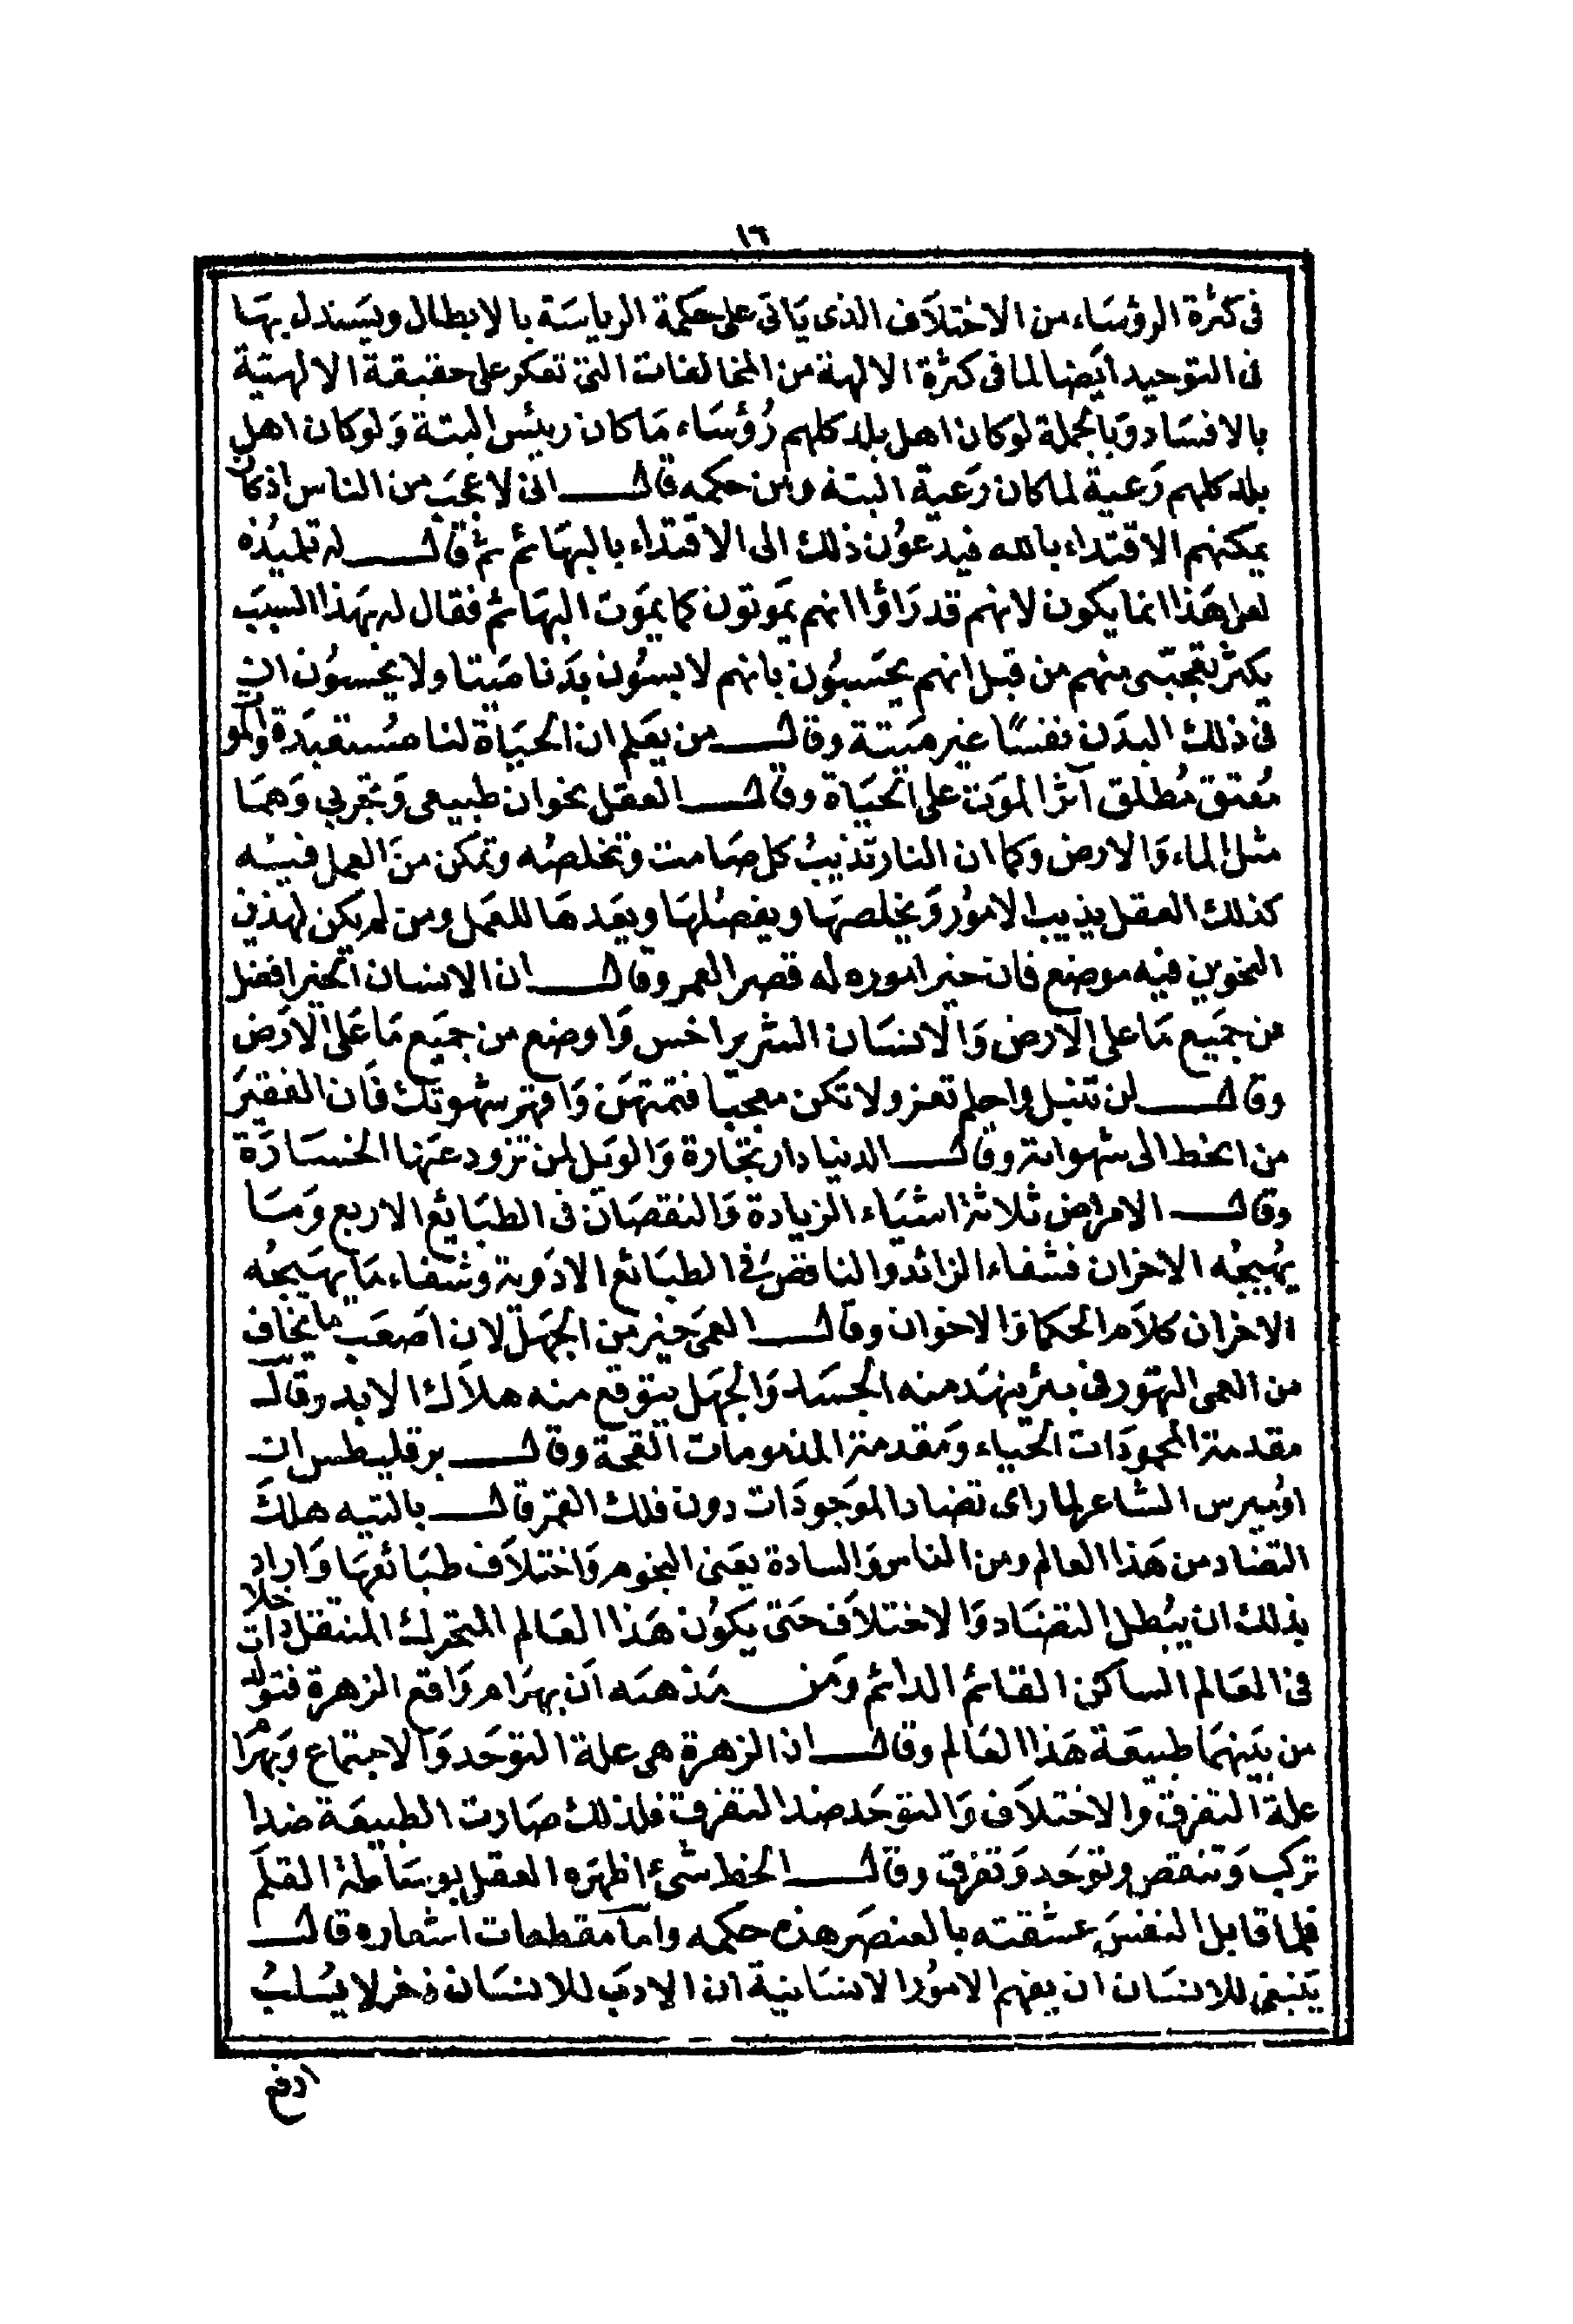 ١٦
فى كثرة الرؤسَاء من الاختلاَف الذى يَاتى على حكمة الرياسَة بالابطال ويَستدل بهَا
فى التوحيد ايَضا لما فى كثرة الالهة من المخالفات التى تعكر على حقيقة الالهيَة
بالافسَاد وَبالجملة لوكان اهل بلد كلهم رُؤسَاء مَا كان رييس البتة وَلوكان اهل
بلد كلهم رَعية لما كان رَعية البتة ومن حكمه قال انى لاعجَب من الناس اذ كان
يمكنهم الاقتدَاء بالله فيدعوُن ذلك الى الاقتدَاء بالبهَائم ثم قال له تلميُذه
لعل هَذا انما يكون لانهم قد رَاوْا انهم يمَوتون كما يموَت البهَائم فقال له بهَذا السببَ
يكثر تعجبّى منهم من قبل انهم يحسَبوُن بانهم لابسُون بدَنا ميَتا ولا يحسبوُن ان
فى ذلك البدَن نفسًا غير ميَتة وقال من يعَلم ان الحيَاة لنا مسُتعبدَة والموت
مُعتق مُطلق آثر الموَت على الحيَاة وقال العقل نحوان طبيعى وَتجربي وَهمَا
مثل الماء وَالارض وكما ان النار تذيبُ كل صَامت وتخلصُه وتمَكن منَ العمل فيَه
كذلك العقل يذيب الاموُر وَيخلصهَا ويفصُلهَا ويعَدهَا للعمَل ومن لم يكن لهذين
النحوين فيه موضع فان خير اموره له قصر العمر وقال ان الانسان الخير افضل
من جميَع مَا على الارض وَالانسَان الشرير اخس وَاوضع من جميَع مَا عَلى الارَض
وقال لن تنبل واحلم تعز ولا تكن معجبَا فتمتهَن وَاقهر شهوتك فَان الفقيَر
من انحط الى شهواته وقال الدنيا دار تجَارة وَالويَل لمن تزود عنَها الخسَارَة
وقال الامراض ثلاثة اشيَاء الزيادة وَالنقصَان فى الطبَايع الاربع وَمَا
يهُيجُه الاحزان فشفاء الزائد وَالناقص فى الطبَائع الادوَية وشفاء مَا يهيَجُه
الاحزان كلاَم الحكما وَالاخوان وقال العمى خير من الجهَل لان اصَعَب ما يخَاف
من العمى التهَور فى بئر ينهَد منه الجسَد وَالجهَل يتوقع منه هلاَك الابد وقال
مقدمة المحموُدَات الحيَاء وَمَقدمة المذمومات القحة وقال برقليطس ان
اومُيرس الشاعر لما راى تضاد الموَجودَات دون فلك القمَر قال ياليته هلكَ
التضاد من هَذا العالم ومن الناس وَالسادة يعَنى النجوم وَاختلاَف طبَائعهَا وَاراد
بذلك ان يبُطل التضَاد وَالاختلاَف حَتى يكوُن هَذا العَالم المتحرك المنتقل داخلا
فى العَالم الساكن القائم الدائم وَمن مَذهبَه اَن بهرَام وَاقع الزهرة فتولد
من بيَنهمَا طبيعَة هَذا العَالم وقال ان الزهرة هى علة التوحَد وَالاجتماع وَبهرَام
علة التفرق والاختلاَف وَالتوحَد ضد التفرق فلذلك صَارت الطبيعَة ضدا
تركب وَتنقص وتوحَد وَتفرق وقال الخط شىء اظهرَه العقل بوسَاطة القلَم
فلما قابل النفسَ عشقته بالعنصَر هذه حكمه واما مقطعات اشعاره قال
يَنبغى للانسَان ان يفهم الاموُر الانسَانية ان الادبَ للانسَان ذخر لا يسُلبُ
ادفع